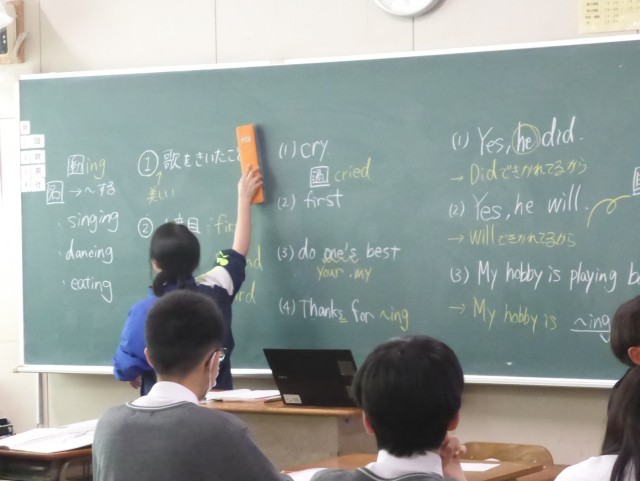 動ing
名→〜する
・singing
・dancing
・eating
① 歌をきいたこ
↑
美しい
② 目:
(1) cry
過 cried
(2) first
(3) do one's best
your.my
(4) Thanks for 〜ing
(1) Yes, he did.
→ Didできかれてるから
(2) Yes, he will.
→ willできかれてるから
(3) My hobby is playing b
→ My hobby is 〜ing